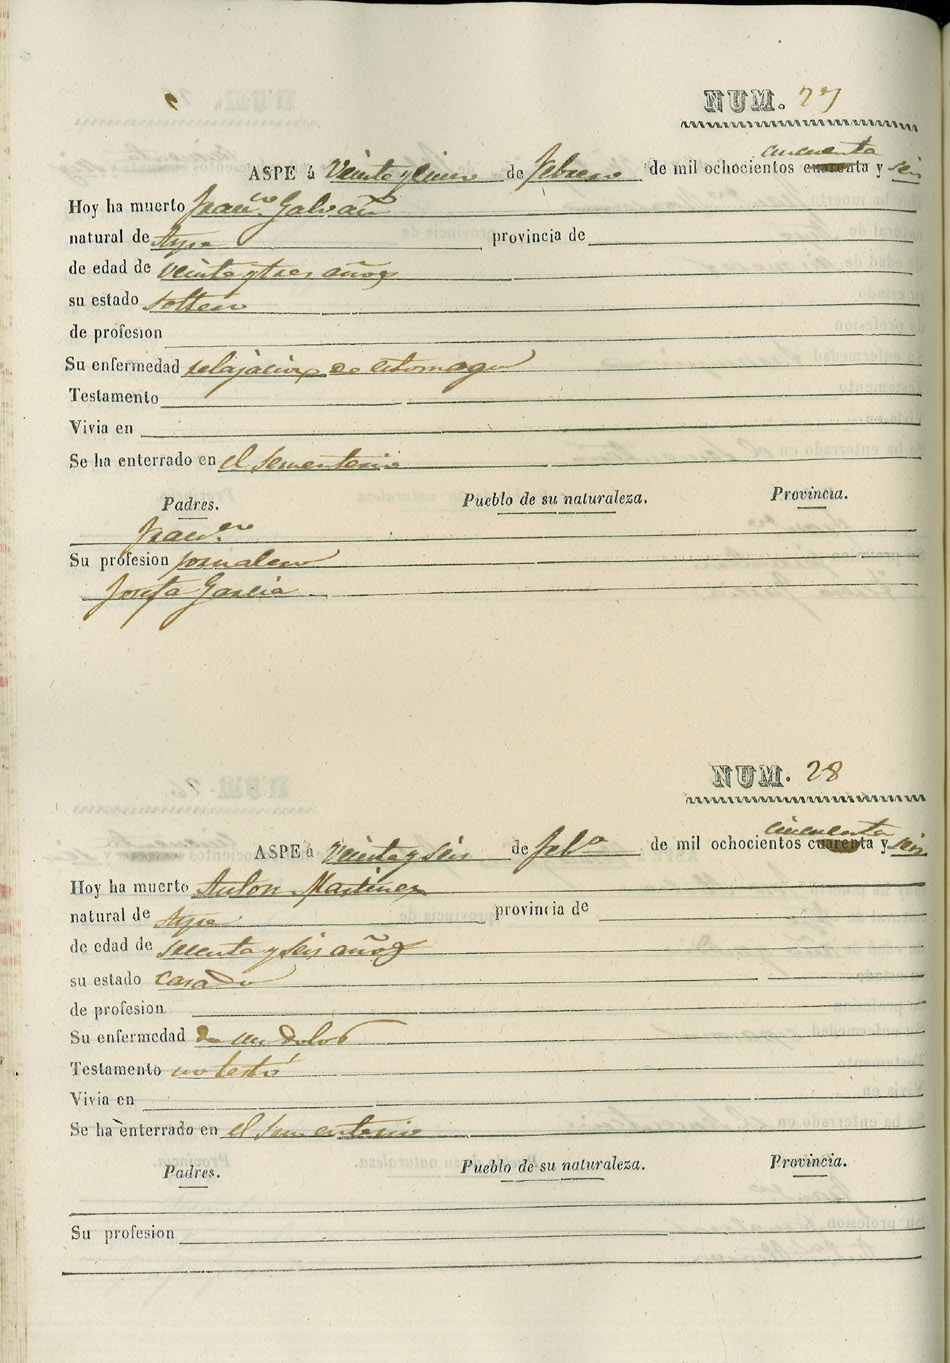 NUM. 27
ASPE á Veinte y cinco de Febrero de mil ochocientos cuarenta cincuenta y seis
Hoy ha muerto Fran.co Galvañ
natural de Aspe provincia de
de edad de veinte y tres años
su estado soltero
de profesion
Su enfermedad relajacion de estomago
Testamento
Vivia en
Se ha enterrado en el sementerio
Padres. Pueblo de su naturaleza. Provincia.
Fran.co
Su profesion jornalero
Josefa Garcia
NUM. 28
ASPE á Veinte y seis de Feb.o de mil ochocientos cuarenta cincuenta y seis
Hoy ha muerto Anton Martinez
natural de Aspe provincia de
de edad de y seis años
su estado casado
de profesion
Su enfermedad de un dolor
Testamento no testó
Vivia en
Se ha enterrado en el sementerio
Padres. Pueblo de su naturaleza. Provincia.
Su profesion